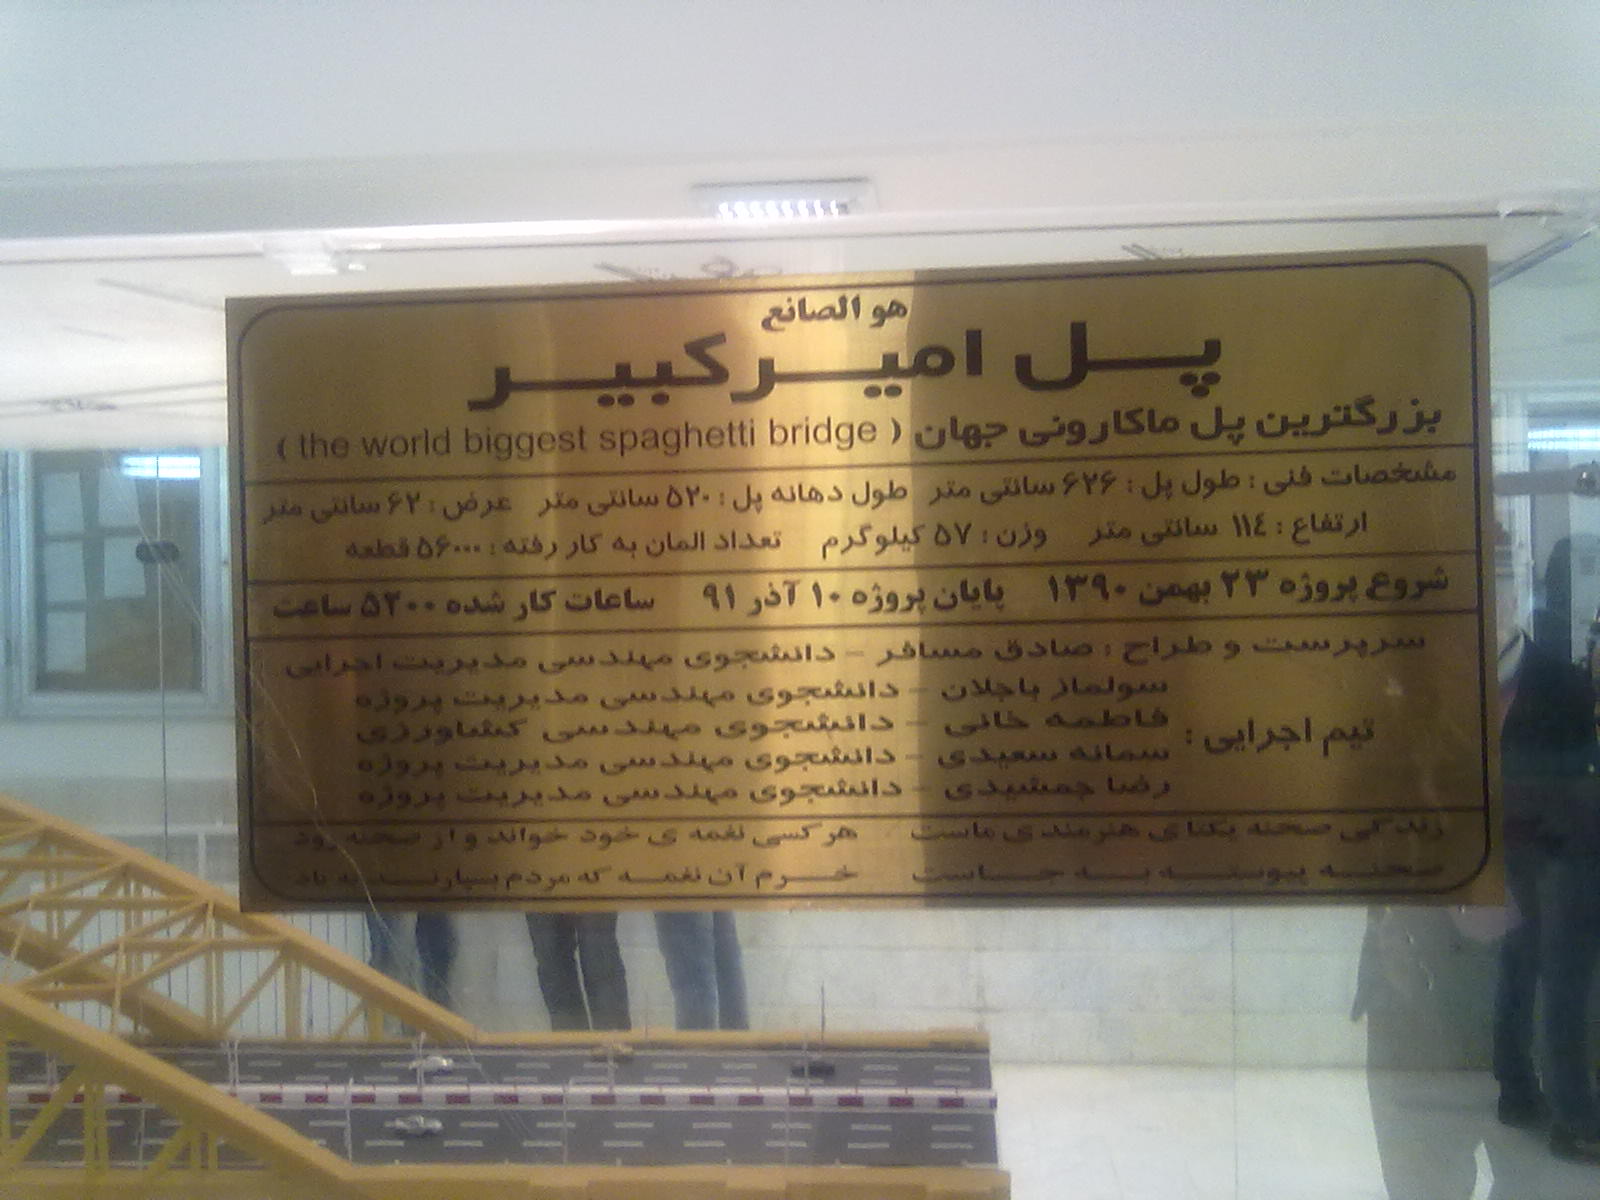 هو الصانع
پل امیرکبیر
بزرگترین پل ماکارونی جهان ( the world biggest spaghetti bridge )
مشخصات فنی : طول پل : ۶۲۶ سانتی متر طول دهانه پل : ۵۲۰ سانتی متر عرض : ۶۲ سانتی متر
ارتفاع : ۱۱٤ سانتی متر وزن : ۵۷ کیلوگرم تعداد المان به کار رفته : ۵۶۰۰۰ قطعه
شروع پروژه ۲۳ بهمن ۱۳۹۰ پایان پروژه ۱۰ آذر ۹۱ ساعات کار شده ۵۲۰۰ ساعت
سرپرست و طراح : صادق مسافر - دانشجوی مهندسی مدیریت اجرایی
تیم اجرایی :
سولماز باجلان - دانشجوی مهندسی مدیریت پروژه
فاطمه خانی - دانشجوی مهندسی کشاورزی
سمانه سعیدی - دانشجوی مهندسی مدیریت پروژه
رضا جمشیدی - دانشجوی مهندسی مدیریت پروژه
زندگی صحنه یکتای هنرمندی ماست هر کسی نغمه ی خود خواند و از صحنه رود
صحنه پیوسته به جاست خرم آن نغمه که مردم بسپارند به یاد